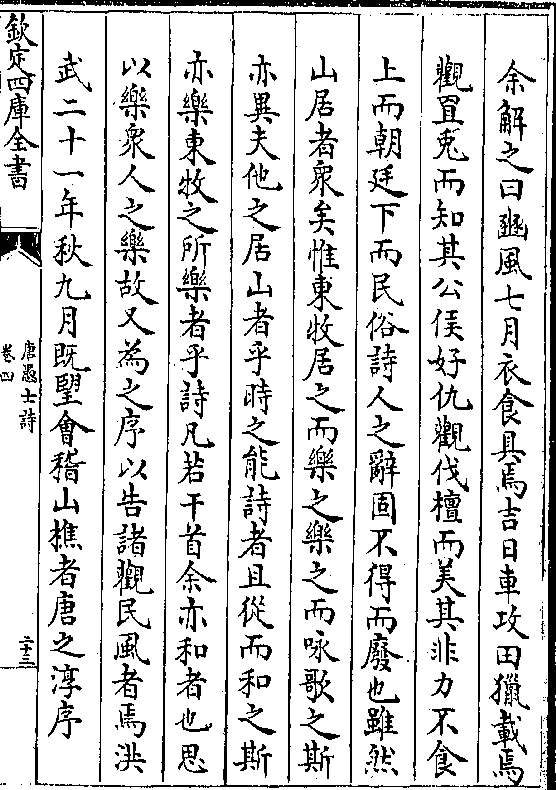 余解之曰豳風七月衣食具焉吉日車攻田獵載焉
觀罝兎而知其公侯好仇觀伐檀而美其非力不食
上而朝廷下而民俗詩人之辭固不得而廢也雖然
山居者衆矣惟東牧居之而樂之樂之而咏歌之斯
亦異夫他之居山者乎時之能詩者且從而和之斯
亦樂東牧之所樂者乎詩凡若干首余亦和者也思
以樂衆人之樂故又為之序以告諸觀民風者焉洪
武二十一年秋九月既望會稽山樵者唐之淳序
欽定四庫全書
唐愚士詩
卷四
二十三